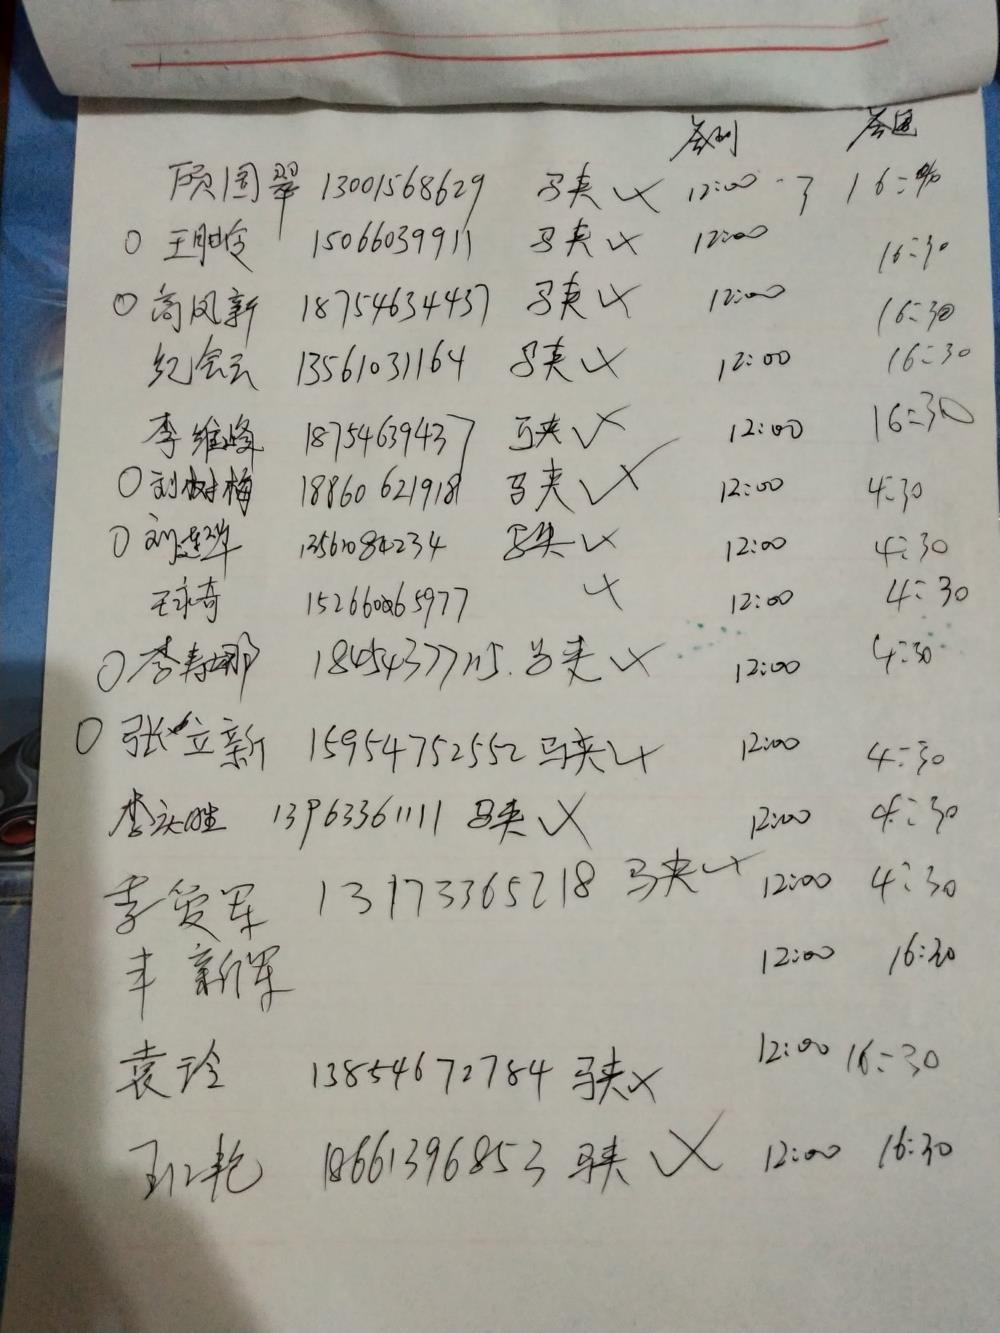 签到 签退
顾国翠 13001568629 马夹 12:00 16:
王胜玲 15066039911 马夹 12:00 16:30
高凤新 18754634437 马夹 12:00 16:30
纪会云 13561031164 马夹 12:00 16:30
李维峰 18754639437 马夹 12:00 16:30
刘树梅 18860621918 马夹 12:00 4:30
刘连华 马夹 12:00 4:30
王永奇 12:00 4:30
李寿娜 马夹 12:00 4:30
张立新 15954752552 马夹 12:00 4:30
李庆胜 13963361111 马夹 12:00 4:30
李爱军 13173365218 马夹 12:00 4:30
丰新军 12:00 16:30
袁玲 13854672784 马夹 12:00 16:30
王红艳 18661396853 马夹 12:00 16:30